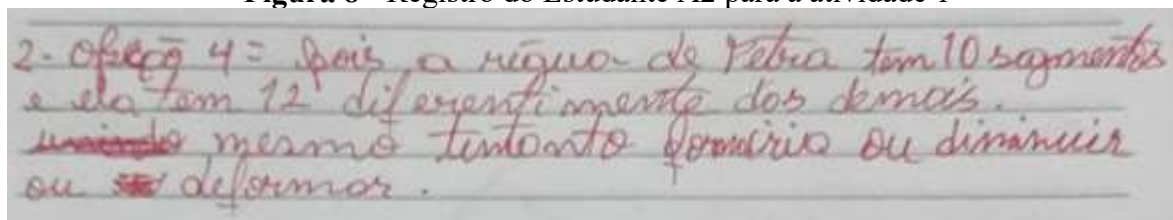 Figura 6 - Registro do Estudante A2 para a atividade 1
2- Opção 4 = Pois a régua de Petra tem 10 segmentos
e ela tem 12 diferentimente dos demais.
mesmo tentonto ou diminuir
ou deformar.